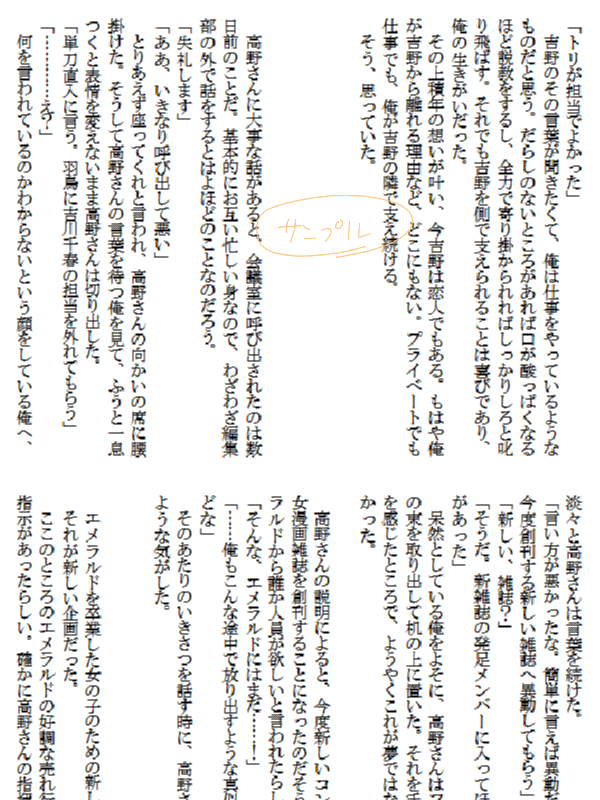 「トリが担当でよかった」
　吉野のその言葉が聞きたくて、俺は仕事をやっているような
ものだと思う。だらしのないところがあれば口が酸っぱくなる
ほど説教をするし、全力で寄り掛かられればしっかりしろと叱
り飛ばす。それでも吉野を側で支えられることは喜びであり、
俺の生きがいだった。
　その上積年の想いが叶い、今吉野は恋人でもある。もはや俺
が吉野から離れる理由など、どこにもない。プライベートでも
仕事でも、俺が吉野の隣で支え続ける。
　そう、思っていた。
サンプル
　高野さんに大事な話があると、会議室に呼び出されたのは数
日前のことだ。基本的にお互い忙しい身なので、わざわざ編集
部の外で話をするとはよほどのことなのだろう。
「失礼します」
「ああ、いきなり呼び出して悪い」
　とりあえず座ってくれと言われ、高野さんの向かいの席に腰
掛けた。そうして高野さんの言葉を待つ俺を見て、ふぅと一息
つくと表情を変えないまま高野さんは切り出した。
「単刀直入に言う。羽鳥に吉川千春の担当を外れてもらう」
「…………え？」
　何を言われているのかわからないという顔をしている俺へ、
淡々と高野さんは言葉を続けた。
「言い方が悪かったな。簡単に言えば異動だ
今度創刊する新しい雑誌へ異動してもらう」
「新しい、雑誌？」
「そうだ。新雑誌の発足メンバーに入ってほ
があった」
　呆然としている俺をよそに、高野さんはフ
の束を取り出して机の上に置いた。それを手
を感じたところで、ようやくこれが夢ではな
かった。
　高野さんの説明によると、今度新しいコン
女漫画雑誌を創刊することになったのだそう
ラルドから誰か人員が欲しいと言われたらし
「そんな、エメラルドにはまだ……！」
「……俺もこんな途中で放り出すような真似
どな」
　そのあたりのいきさつを話す時に、高野さ
ような気がした。
　エメラルドを卒業した女の子のための新し
それが新しい企画だった。
　ここのところのエメラルドの好調な売れ行
指示があったらしい。確かに高野さんの指揮